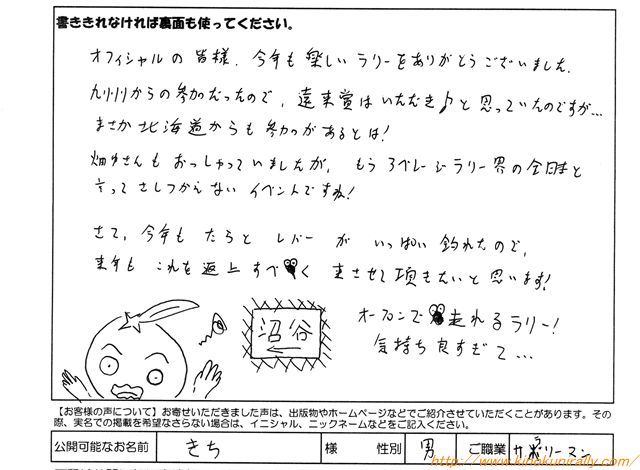 書ききれなければ裏面も使ってください。
オフィシャルの皆様、今年も楽しいラリーをありがとうございました。
九州からの参加だったので、遠来賞はいただき♪と思っていたのですが…
まさか北海道からも参加があるとは!
畑中さんもおっしゃっていましたが、もうアベレージラリー界の全日本と
言ってさしつかえないイベントですね!
さて、今年もたらとレバーがいっぱい釣れたので、
来年もこれを返上すべく来させて頂きたいと思います!
オープンで走れるラリー!
気持ち良すぎて…
沼谷
←
【お客様の声について】お寄せいただきました声は、出版物やホームページなどでご紹介させていただくことがあります。その
際、実名での掲載を希望なさらない場合は、イニシャル、ニックネームなどをご記入ください。
公開可能なお名前 きち 様 性別 男 ご職業 サボリーマン
ラ
http://www.kinokunirally.com/